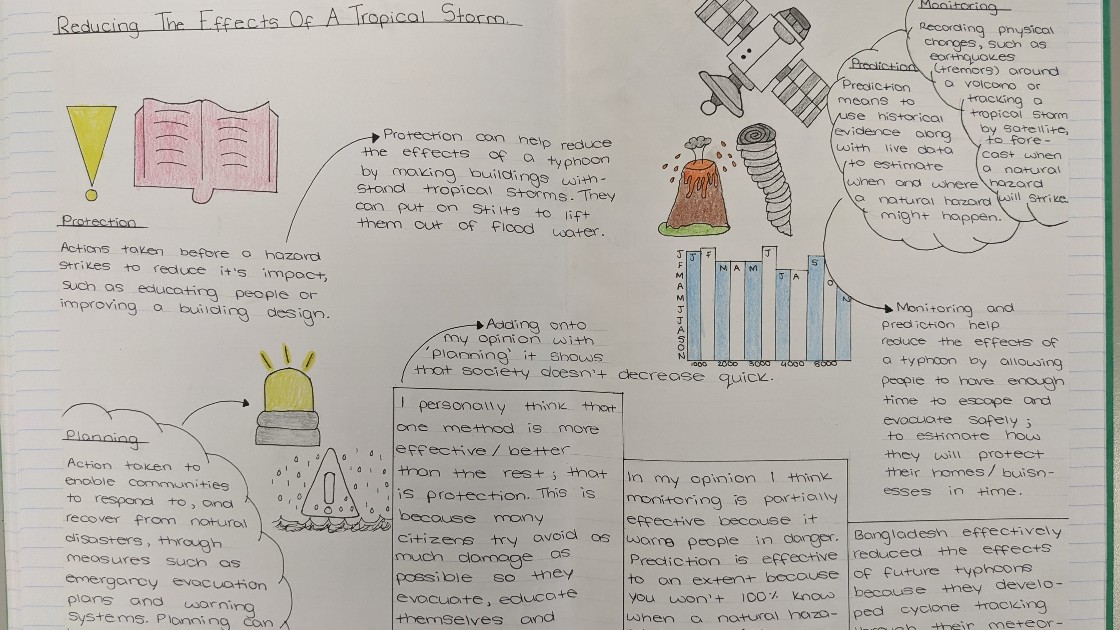 Reducing The Effects Of A Tropical Storm.
Protection
Actions taken before a hazard
strikes to reduce it's impact,
such as educating people or
improving a building design.
Protection can help reduce
the effects of a typhoon
by making buildings with-
stand tropical storms. They
can put on stilts to lift
them out of flood water.
Monitoring
Recording physical
changes, such as
earthquakes
(tremors) around
a volcano or
tracking a
tropical storm
by satellite,
to fore-
cast when
a natural
hazard
will strike.
Prediction
Prediction
means to
use historical
evidence along
with live data
to estimate
when and where
a natural hazard
might happen.
J
F
M
A
M
J
J
A
S
O
N
J F M A M J J A S O N
1000 2000 3000 4000 5000
Monitoring and
prediction help
reduce the effects of
a typhoon by allowing
people to have enough
time to escape and
evacuate safely;
to estimate how
they will protect
their homes/buisn-
esses in time.
Planning
Action taken to
enable communities
to respond to, and
recover from natural
disasters, through
measures such as
emergancy evacuation
plans and warning
systems. Planning can
Adding onto
my opinion with
'planning' it shows
that society doesn't decrease quick.
I personally think that
one method is more
effective/better
than the rest; that
is protection. This is
because many
citizens try avoid as
much damage as
possible so they
evacuate, educate
themselves and
In my opinion I think
monitoring is partially
effective because it
warns people in danger.
Prediction is effective
to an extent because
you won't 100% know
when a natural haza-
Bangladesh effectively
reduced the effects
of future typhoons
because they develo-
ped cyclone tracking
through their meteor-